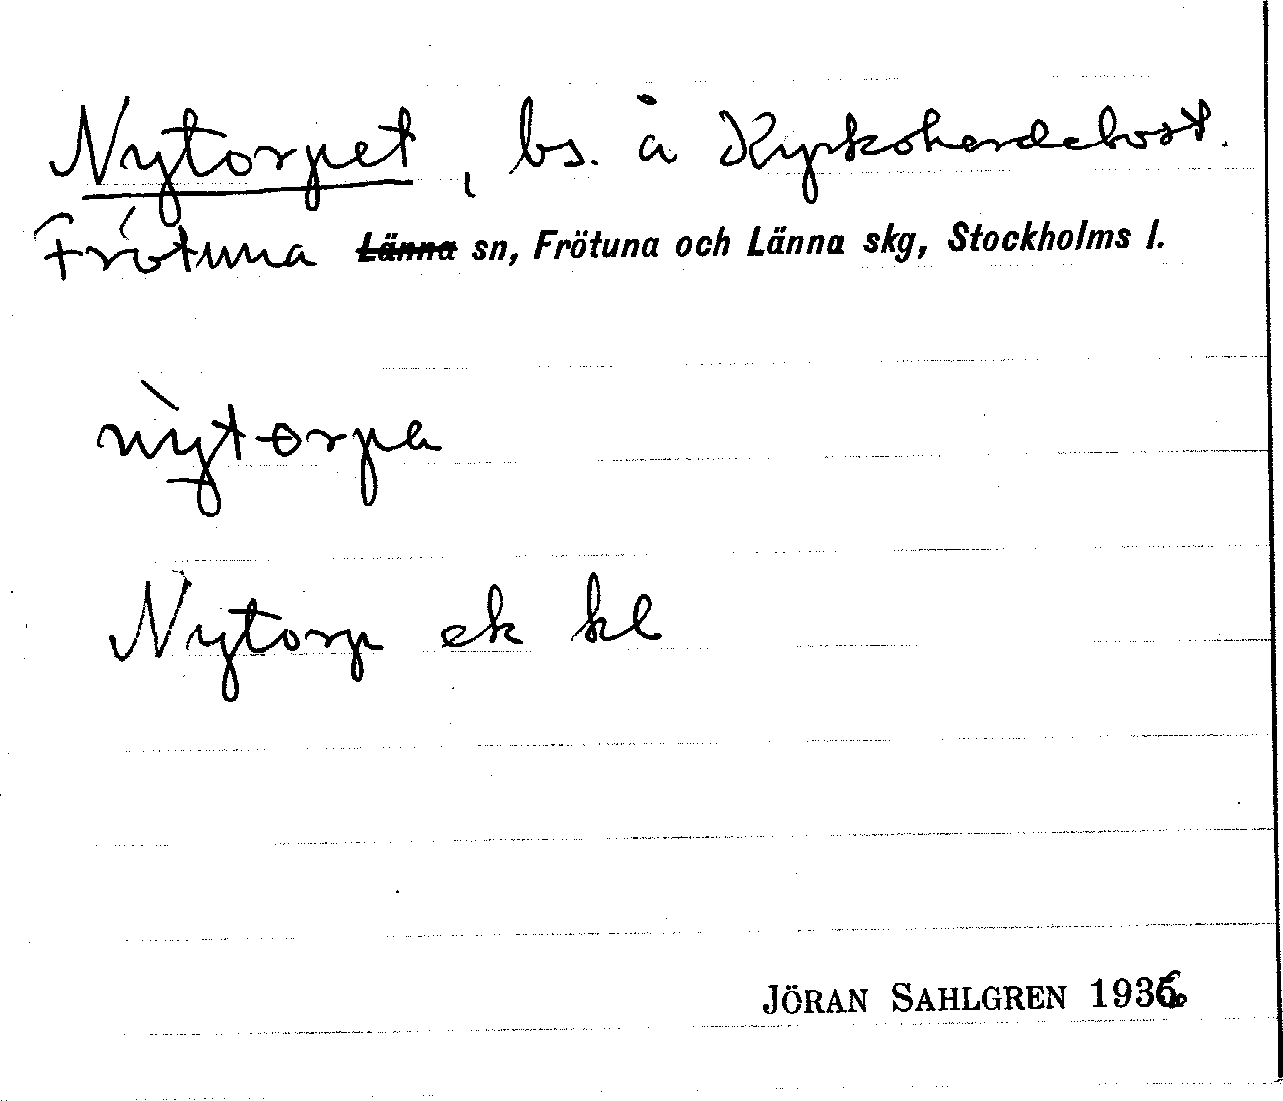 Nytorpet, bs. å Kyrkoherdebost.
Frötuna Länna sn, Frötuna och Länna skg, Stockholms l.
nỳtorpa
Nytorp ek kl
JÖRAN SAHLGREN 1936